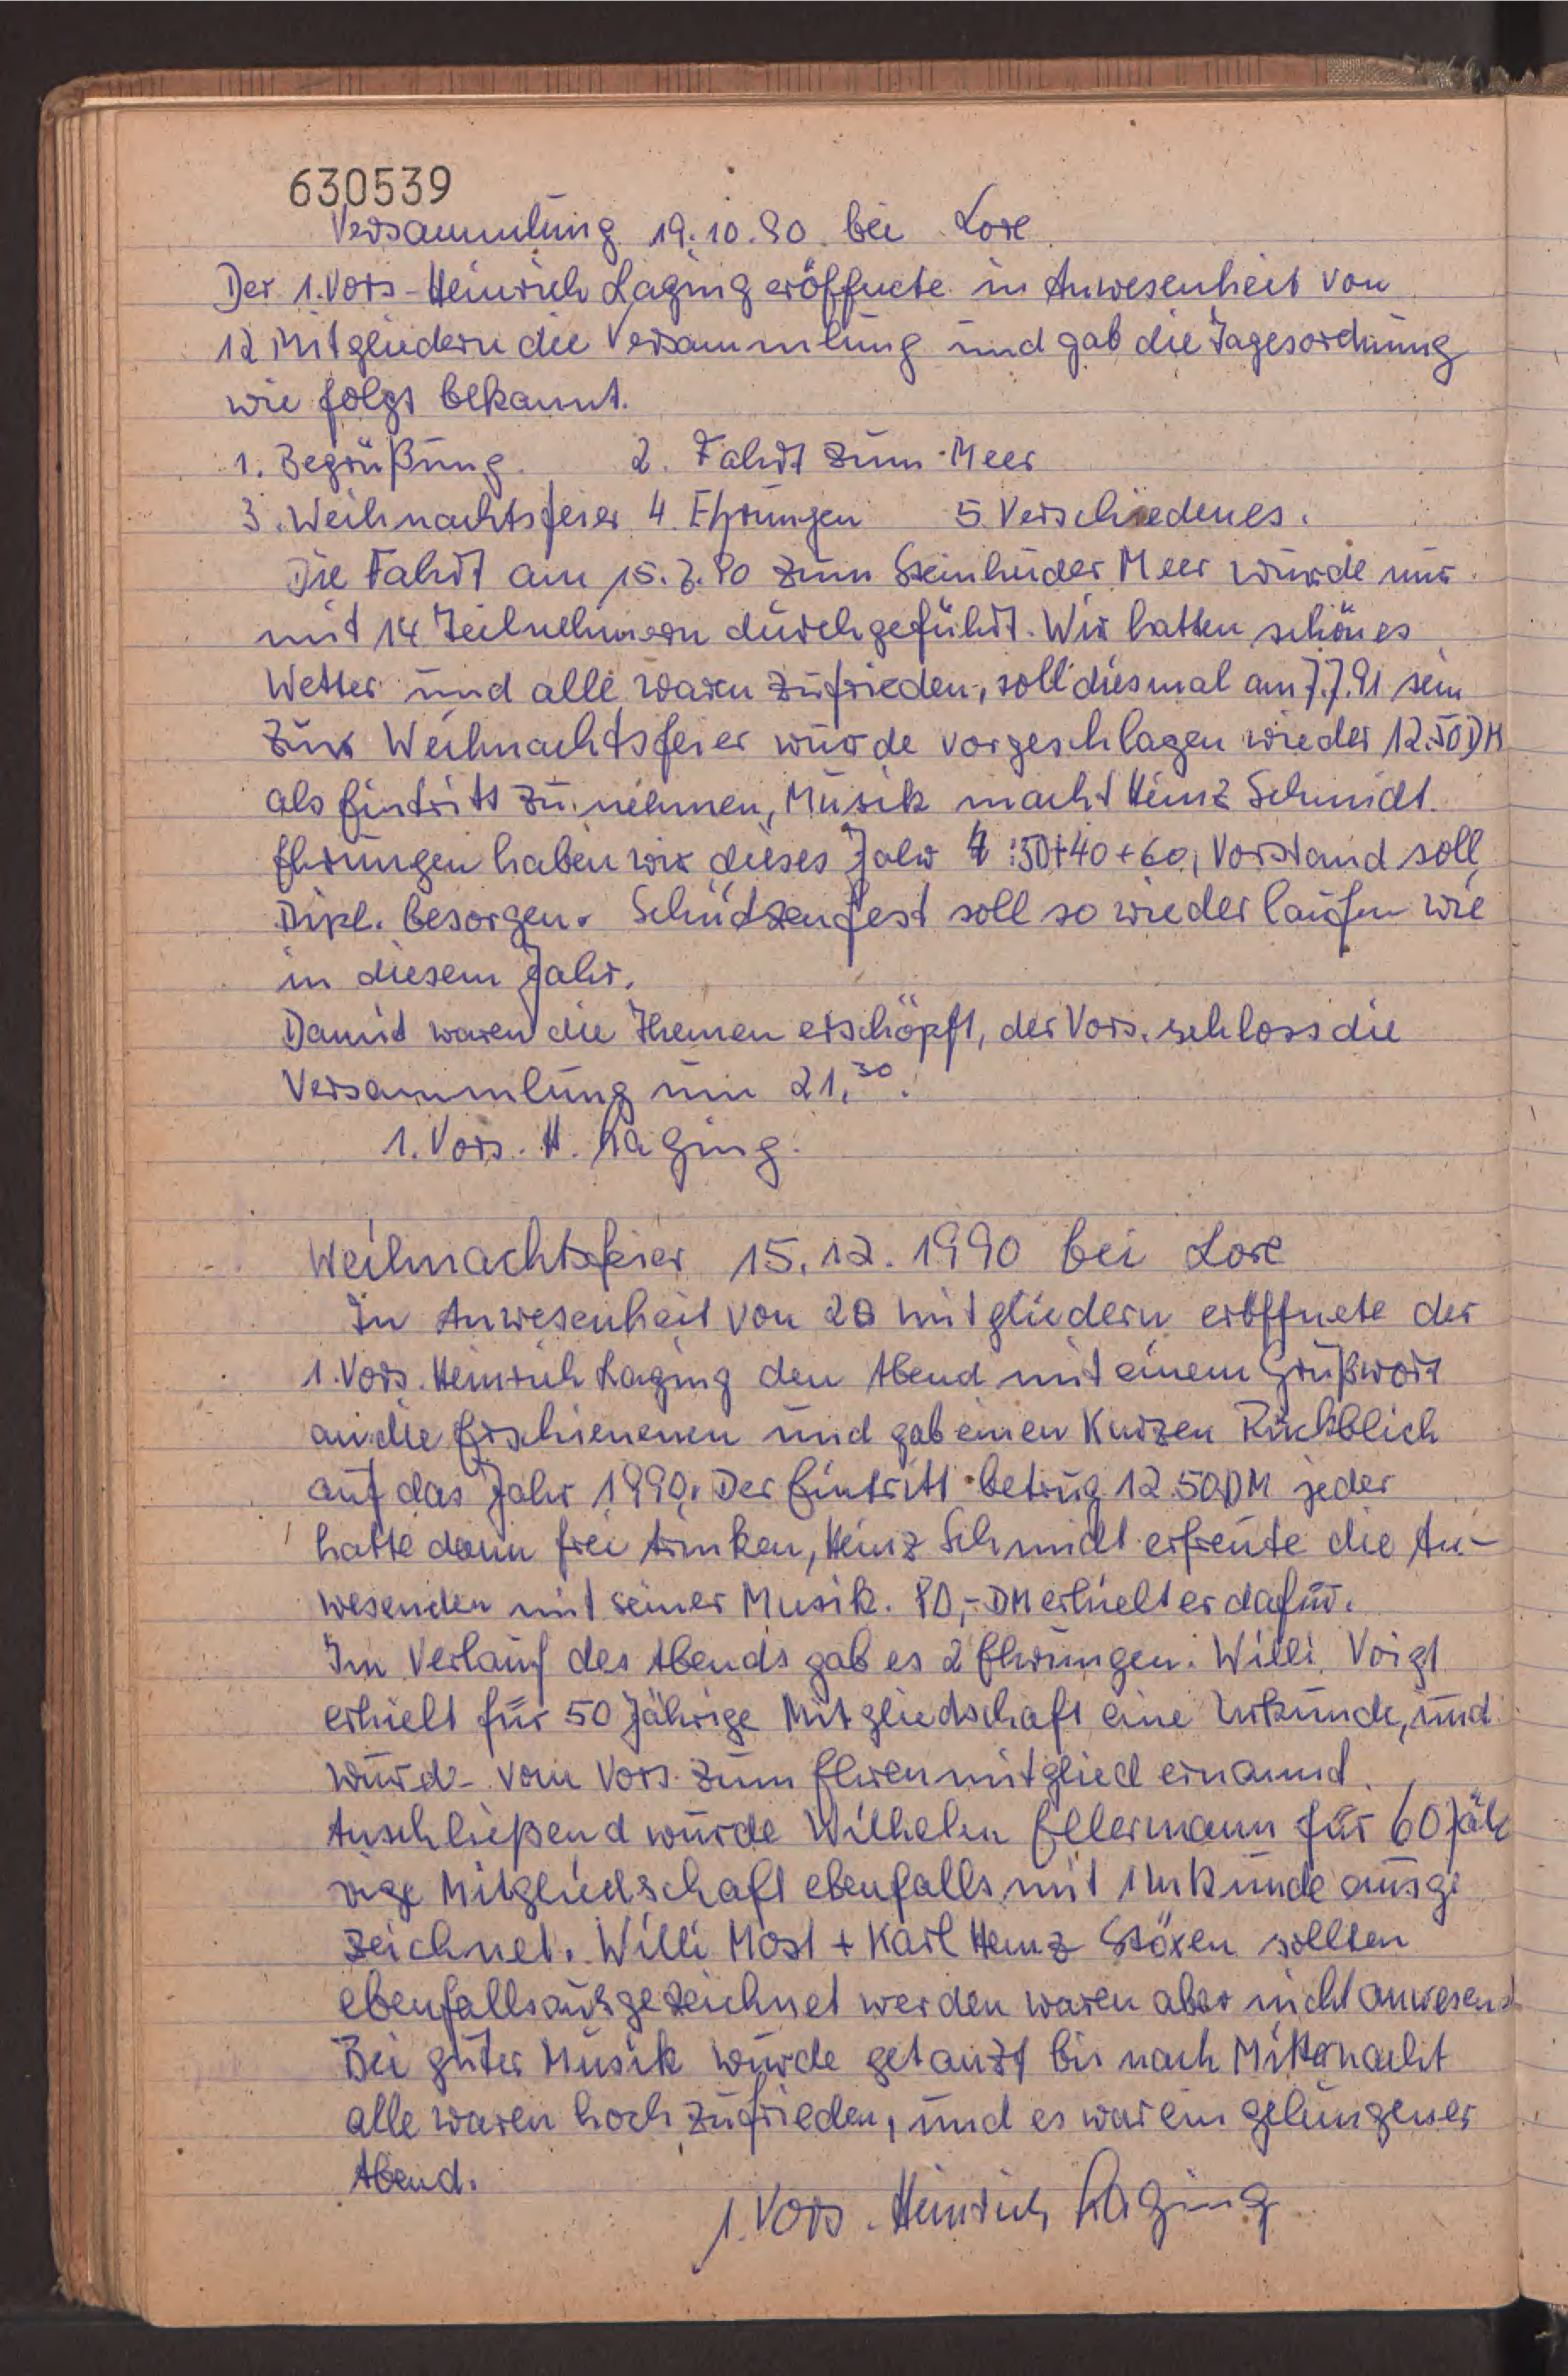 630539
Versammlung 19.10.90 bei Lore
Der 1. Vors. Heinrich Laging eröffnete in Anwesenheit von
12 Mitgliedern die Versammlung und gab die Tagesordnung
wie folgt bekannt.
1. Begrüßung. 2. Fahrt zum Meer
3. Weihnachtsfeier 4. Ehrungen 5 Verschiedenes.
Die Fahrt am 15.7.90 zum Steinhuder Meer wurde nur
mit 14 Teilnehmern durchgeführt. Wir hatten schönes
Wetter und alle waren zufrieden, soll diesmal am 7.7.91 sein
Zur Weihnachtsfeier wurde vorgeschlagen wieder 12.50 DM
als Eintritt zu nehmen, Musik macht Heinz Schmidt.
Ehrungen haben wir dieses Jahr 4 : 50+40+60, Vorstand soll
Dipl. besorgen. Schützenfest soll so wieder laufen wie
in diesem Jahr.
Damit waren die Themen erschöpft, der Vors. schloss die
Versammlung um 21.30.
1. Vors. H. Laging.
Weihnachtsfeier 15.12.1990 bei Lore
In Anwesenheit von 28 Mitgliedern eröffnete der
1. Vors. Heinrich Laging den Abend mit einem Grußwort
an die Erschienenen und gab einen Kurzen Rückblich
auf das Jahr 1990. Der Eintritt betrug 12.50 DM jeder
hatte dann frei trinken, Heinz Schmidt erfreute die An-
wesenden mit seiner Musik. 80,- DM erhielt er dafür.
Im Verlauf des Abends gab es 2 Ehrungen. Willi Voigt
erhielt für 50 Jährige Mitgliedschaft eine Urkunde, und
wurde vom Vors. zum Ehrenmitglied ernannt.
Anschließend wurde Wilhelm Ellermann für 60 Jäh
rige Mitgliedschaft ebenfalls mit 1 Urkunde ausge
zeichnet. Willi Most + Karl Heinz Stöxen sollten
ebenfalls ausgezeichnet werden waren aber nicht anwesend
Bei guter Musik wurde getanzt bis nach Mitternacht
alle waren hoch zufrieden, und es war ein gelungener
Abend.
1. Vors. Heinrich Laging